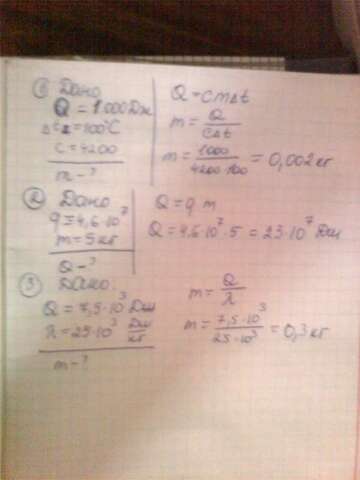 ① Дано
Q = 1000 Дж
Δt = 100°C
c = 4200
m - ?
Q = cmΔt
m = Q / cΔt
m = 1000 / 4200·100 = 0,002 кг
② Дано
q = 4,6·10⁷
m = 5 кг
Q - ?
Q = q m
Q = 4,6·10⁷·5 = 23·10⁷ Дж
③ Дано:
Q = 7,5·10³ Дж
λ = 25·10³ Дж/кг
m - ?
m = Q / λ
m = 7,5·10³ / 25·10³ = 0,3 кг